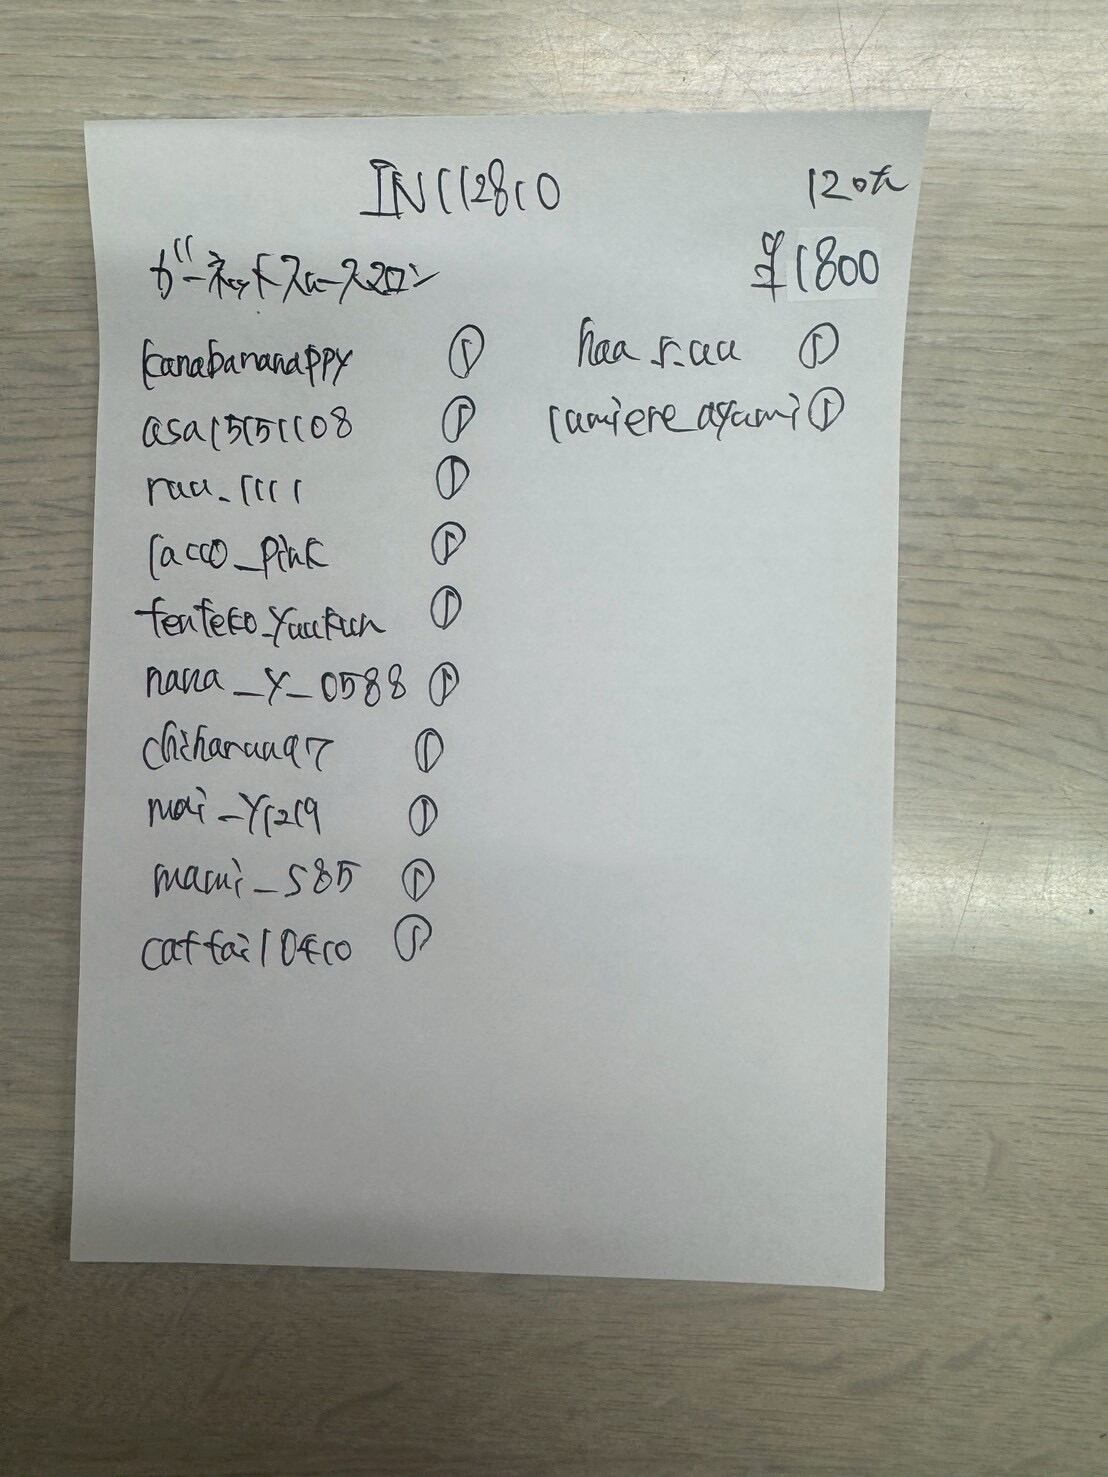 IN112810
120th
ガーネットスムースマロン
¥1800
kanabananappy ①
asa15151108 ①
rau_1111 ①
lacco_pink ①
tenteko_yuukun ①
nana_y_0588 ①
chiharuu97 ①
moi_y1219 ①
mami_s85 ①
cattail0410 ①
haa_r.uu ①
lumiere_ayumi ①